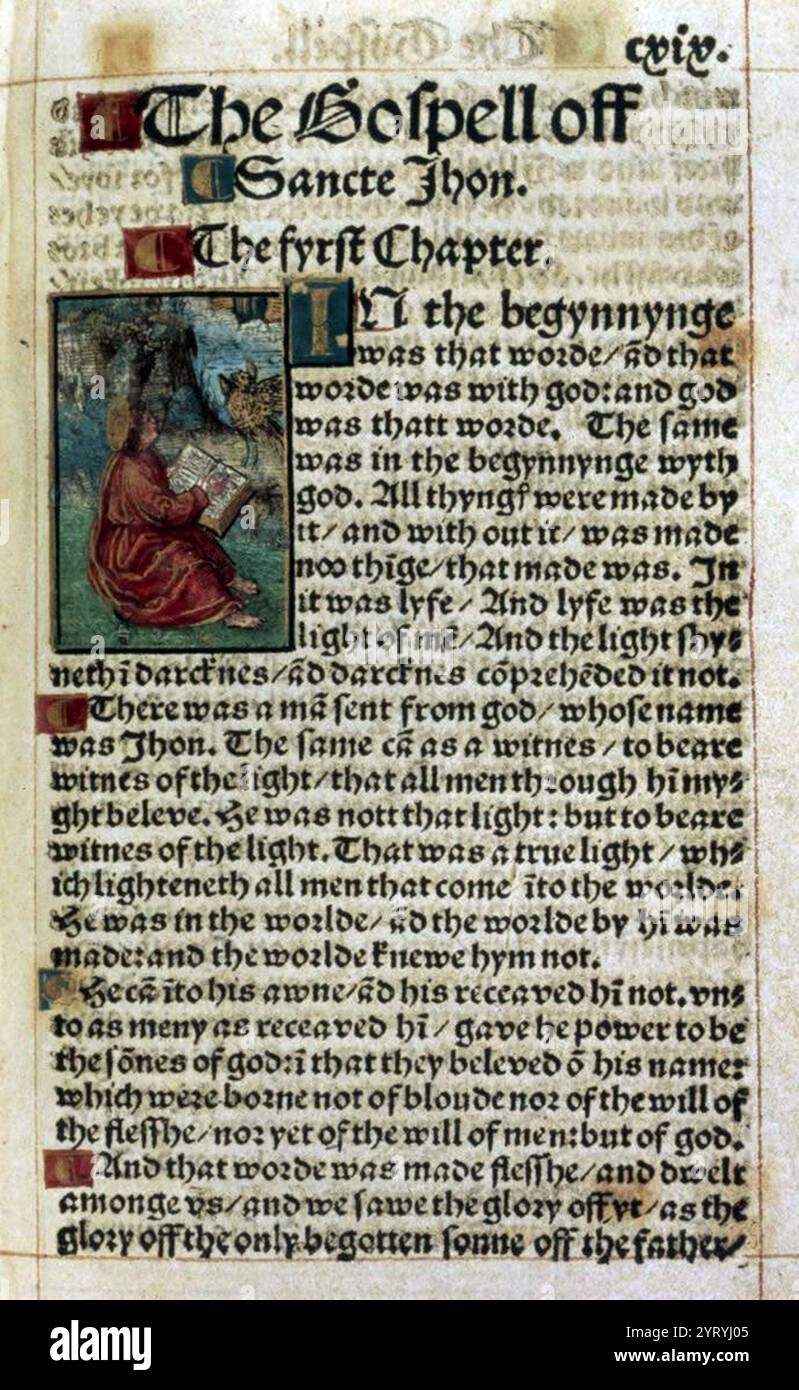 cxix.
The Gospell off
Sancte Jhon.
The fyrst Chapter.
IN the begynnynge
was that worde/ ād that
worde was with god: and god
was thatt worde. The same
was in the begynnynge wyth
god. All thyngꝭ were made by
it/ and with out it/ was made
noo thīge/ that made was. In
it was lyfe/ And lyfe was the
light of mē/ And the light shy⸗
neth ī darcknes/ ād darcknes cōprehēded it not.
There was a mā sent from god/ whose name
was Jhon. The same cā as a witnes/ to beare
witnes of the light/ that all men through hī my⸗
ght beleve. He was nott that light: but to beare
witnes of the light. That was a true light/ wh⸗
ich lighteneth all men that come īto the worlde.
He was in the worlde/ ād the worlde by hī was
made: and the worlde knewe hym not.
He cā īto his awne/ ād his receaved hī not. vn⸗
to as meny as receaved hī/ gave he power to be
the sōnes of god: ī that they beleved ō his name:
which were borne not of bloude nor of the will of
the flesshe/ nor yet of the will of men: but of god.
And that worde was made flesshe/ and dwelt
amonge vs/ and we sawe the glory off yt/ as the
glory off the only begotten sonne off the father/
alamy
Image ID: 2YRYJ05
www.alamy.com